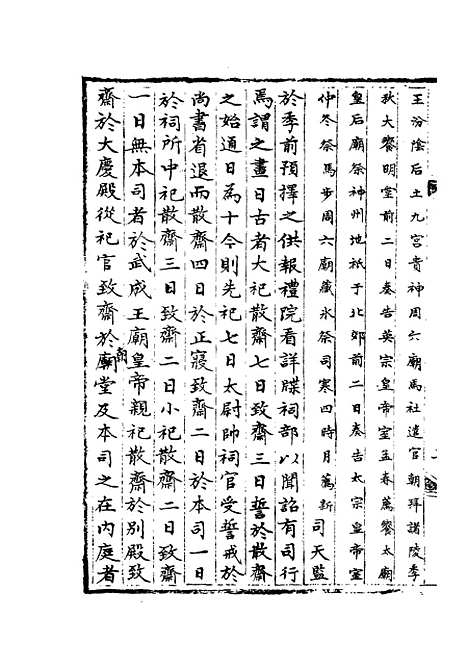 王汾陰后土九宮貴神周六廟馬社遣官朝拜諸陵季
秋大饗明堂前二日奏告英宗皇帝室孟春薦饗太廟
皇后廟祭神州地祇于北郊前二日奏告太宗皇帝室
仲冬祭馬步周六廟藏氷祭司寒四時月薦新司天監
於季前預擇之供報禮院看詳牒祠部以聞詔有司行
焉謂之畫日古者大祀散齋七日致齋三日誓於散齋
之始通日為十今則先祀七日太尉帥祠官受誓戒於
尚書省退而散齋四日於正寢致齋二日於本司一日
於祠所中祀散齋三日致齋二日小祀散齋二日致齋
一日無本司者於武成王廟皇帝親祀散齋於別殿致
齋於大慶殿從祀官致齋於廟堂及本司之在內庭者